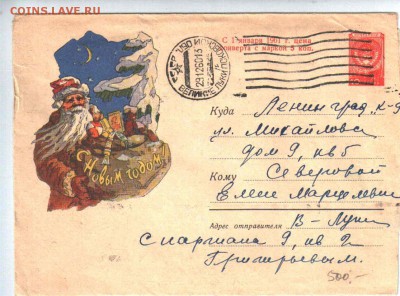 COINS.SU
COINS-LAVE.RU
С 1 января 1961 г. цена
конверта с маркой 5 коп.
ВЕЛИКИЕ ЛУКИ
С Новым годом!
Куда Ленинград, К-9
ул. Михайловс
дом 9, кв 6
Кому Северовой
Елене Марцелевне
Адрес отправителя В-Луки
Спартака 9, кв 2
Григорьевым.
500-